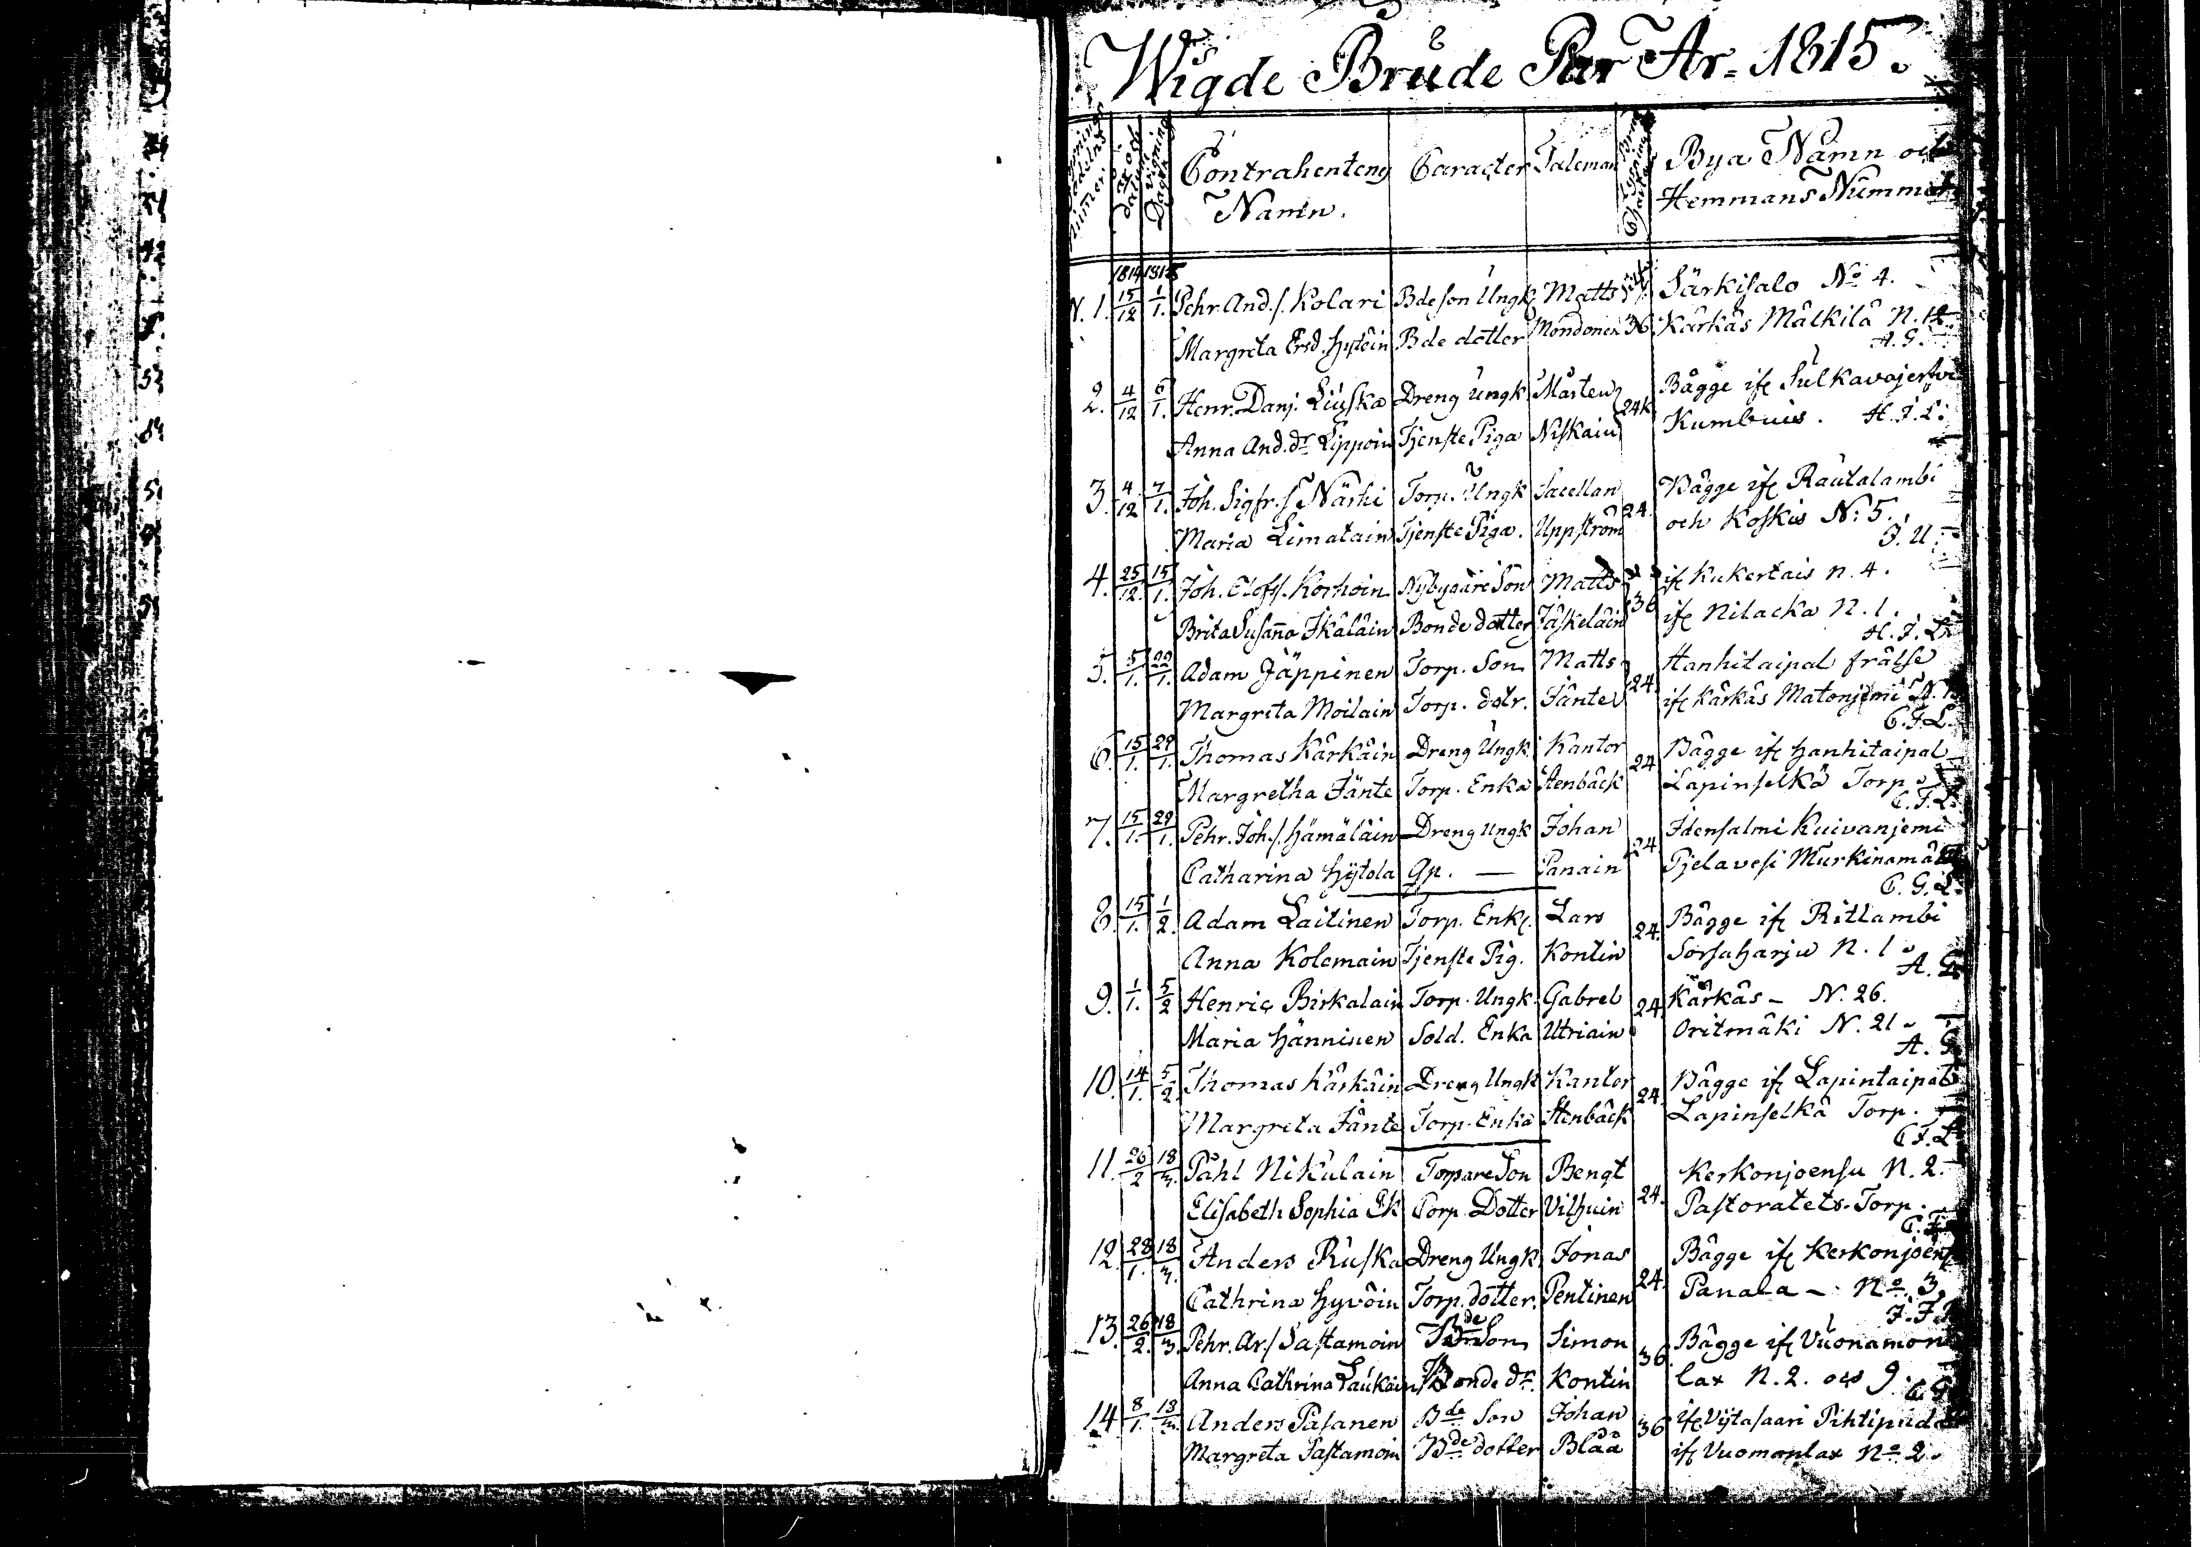 Wigde Brude Par År 1815.
Contrahentens Namn. Caracter Taleman Bya Namn och Hemmans Nummer
1814 1815
N. 1. 15/12 1/1. Pehr And.s. Kolari Bde son Ungk Matts Särkisalo No 4.
Margreta Ersd. Hytöin Bde dotter Mondonen 36. Kärkäs Mälkilä N. 12
A. G.
2. 4/12 6/1. Henr. Danj. Liuska Dreng Ungk Mårten 24 k Bägge ifr Sulkavajerfvi
Anna And. dr Lippoin Tjenste Piga Niskain Kumbuis. H. J. L.
3. 4/12 7/1. Joh. Sigfr. s Närhi Torp. Ungk Sacellan 24. Bägge ifr Rautalambi
Maria Limatain Tjenste Piga. Uppström och Koskis N: 5.
J. U.
4. 25/12. 15/1. Joh. Elofs. Korhoin Nybyggare Son Matts 36 ifr Kukertais n. 4.
Brita Susanna Ikäläin Bonde dotter Jäskeläin ifr Nilacka N. 1.
H. J. L.
5. 5/1. 22/1. Adam Jäppinen Torp. Son Matts 24. Hanhitaipal frälse
Margreta Moilain Torp. dotr. Jänte ifr Kärkäs Matonjemi N.
C. J. L.
6. 15/1. 29/1. Thomas Kärkäin Dreng Ungk Kantor 24 Bägge ifr Hanhitaipal
Margretha Jänte Torp. Enka Stenbäck Lapinselkä Torp.
C. J. L.
7. 15/1. 29/1. Pehr. Joh.s. Hämäläin Dreng Ungk Johan 24 Idensalmi Kuivanjemi
Catharina Hytola Gp. — Panain Pjelavesi Murkinamäki
C. G. L.
8. 15/1. 1/2. Adam Laitinen Torp. Enkl. Lars 24. Bägge ifr Ritlambi
Anna Kolemain Tjenste Pig. Kontin Sorsaharju N. 1
A. G.
9. 1/1. 5/2 Henric Birkalain Torp. Ungk. Gabrel 24. Kärkäs - N. 26.
Maria Hänninen Sold. Enka Utriain Oritmäki N. 21
A. G.
10. 14/1. 5/2. Thomas Kärkäin Dreng Ungk Kantor 24. Bägge ifr Lapintaipal
Margreta Jänte Torp. Enka Stenbäck Lapinselkä Torp.
C J. L
11. 26/2 18/3. Påhl Nikulain Torpare Son Bengt 24. Kerkonjoensu N. 2.
Elisabeth Sophia Ek Torp. Dotter Vilhuin Pastoratets Torp.
12. 28/1. 18/3. Anders Ruska Dreng Ungk. Jonas 24. Bägge ifr Kerkonjoens
Cathrina Hyvöin Torp. dotter. Pentinen Panala - No 3.
13. 26/2. 18/3. Pehr. Ar.s Sastamoin Bde Son Simon 36. Bägge ifr Vuonamon
Anna Cathrina Laukain Bonde dr. Kontin lax N. 2. och 9.
14. 8/1. 18/3. Anders Pasanen Bde Son Johan 36 ifr Vijtasaari Pihtipudas
Margreta Sastamoin Bde dotter Blåå ifr Vuomanlax No 2.